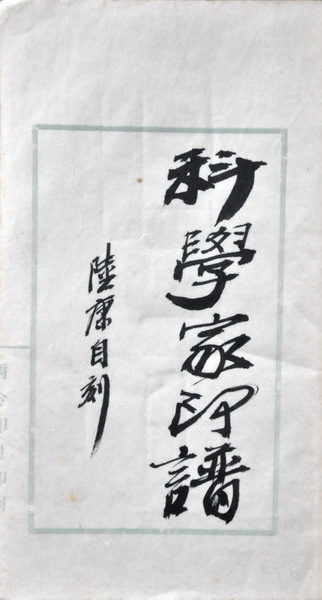 科學家印譜
陸康自刻